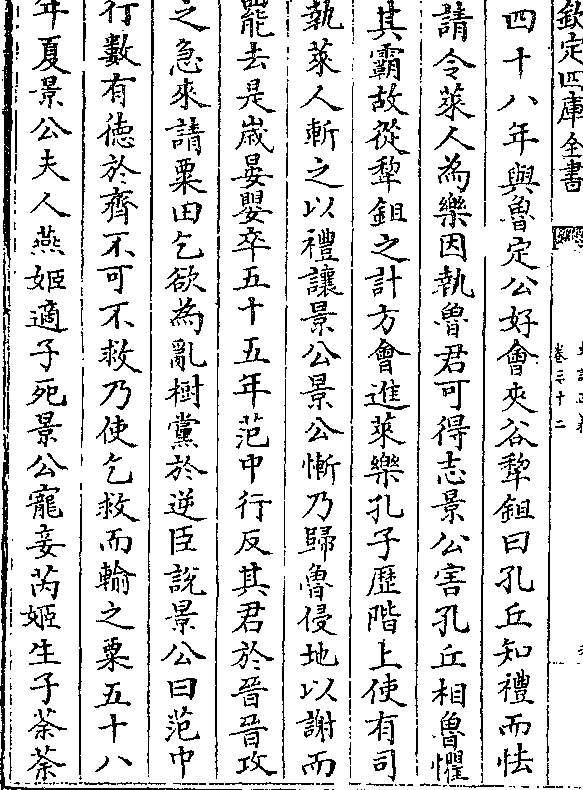 欽定四庫全書
卷三十二
四十八年與魯定公好會夾谷犂鉏曰孔丘知禮而怯
請令萊人為樂因執魯君可得志景公害孔丘相魯懼
其霸故從犂鉏之計方會進萊樂孔子歷階上使有司
執萊人斬之以禮讓景公景公慚乃歸魯侵地以謝而
罷去是歲晏嬰卒五十五年范中行反其君於晉晉攻
之急來請粟田乞欲為亂樹黨於逆臣說景公曰范中
行數有德於齊不可不救乃使乞救而輸之粟五十八
年夏景公夫人燕姬適子死景公寵妾芮姬生子荼荼